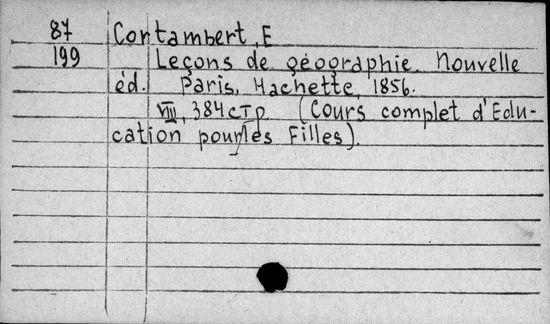 87 Cortambert, E
199 Leçons de géographie. Nouvelle
éd. Paris, Hachette, 1856.
VIII, 384 стр (Cours complet d'Edu-
cation pour les Filles).